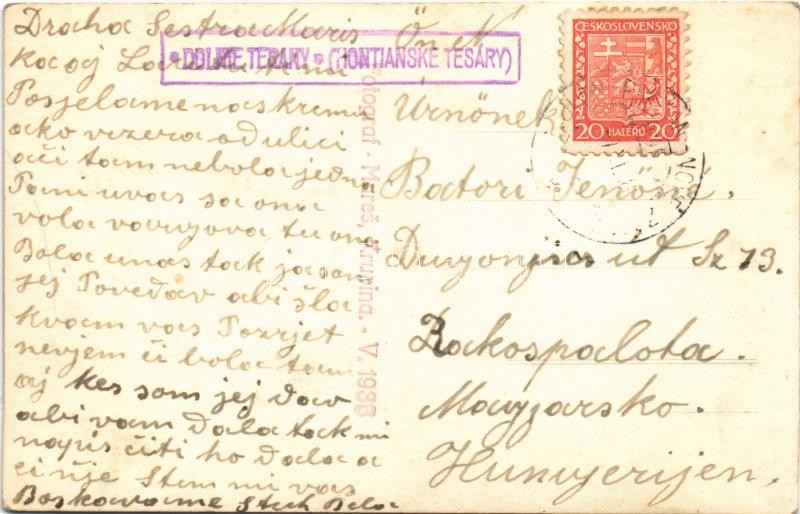 Draha Sestra Maris
ka aj
Posjelame nas kremi
ako vizera od ulici
oči tam nebola jedna
Pani uvas sa ona
vola varujova tu on
Bola unas tak ja som
jej Povedav abi šla
kvam vas Pozrjet
nevjem či bola tam
aj kes som jej dav
abi vam dala tak mi
napis čiti ho dala a
ci nje Stem mi vas
Boskavame Steh Bela
DOLNIE TERANY (HONTIANSKE TESÁRY)
Fotograf - Mareš, Krupina. - V. 1938
ČESKOSLOVENSKO
20 HALÉŘŮ 20
Ön N
Úrnőnek
Batori Jenőne.
Dugonjis ut Sz 73.
Rakospalota.
Magyarsko.
Hungerijen.